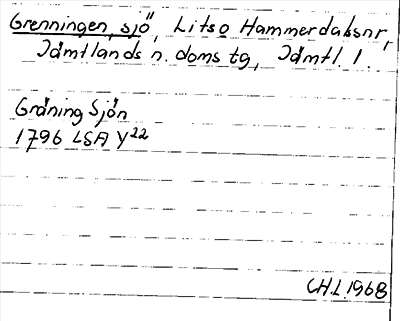 Grenningen, sjö, Lits o Hammerdalsnr,
Jämtlands n. doms tg, Jämtl. l.
Gråning Sjön
1796 LSA Y22
CH.L.1968